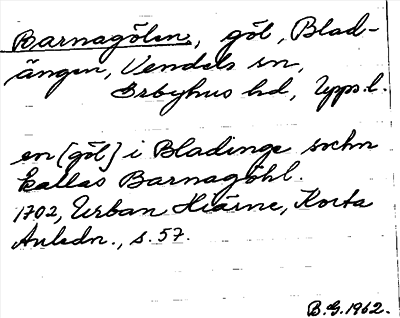 Barnagölen, göl, Blad-
ängen, Vendels sn,
Örbyhus hd, Upps.l.
en [göl] i Bladinge sochn
kallas Barnagöhl.
1702, Urban Hiärne, Korta
Anledn., s. 57.
B.G. 1962.